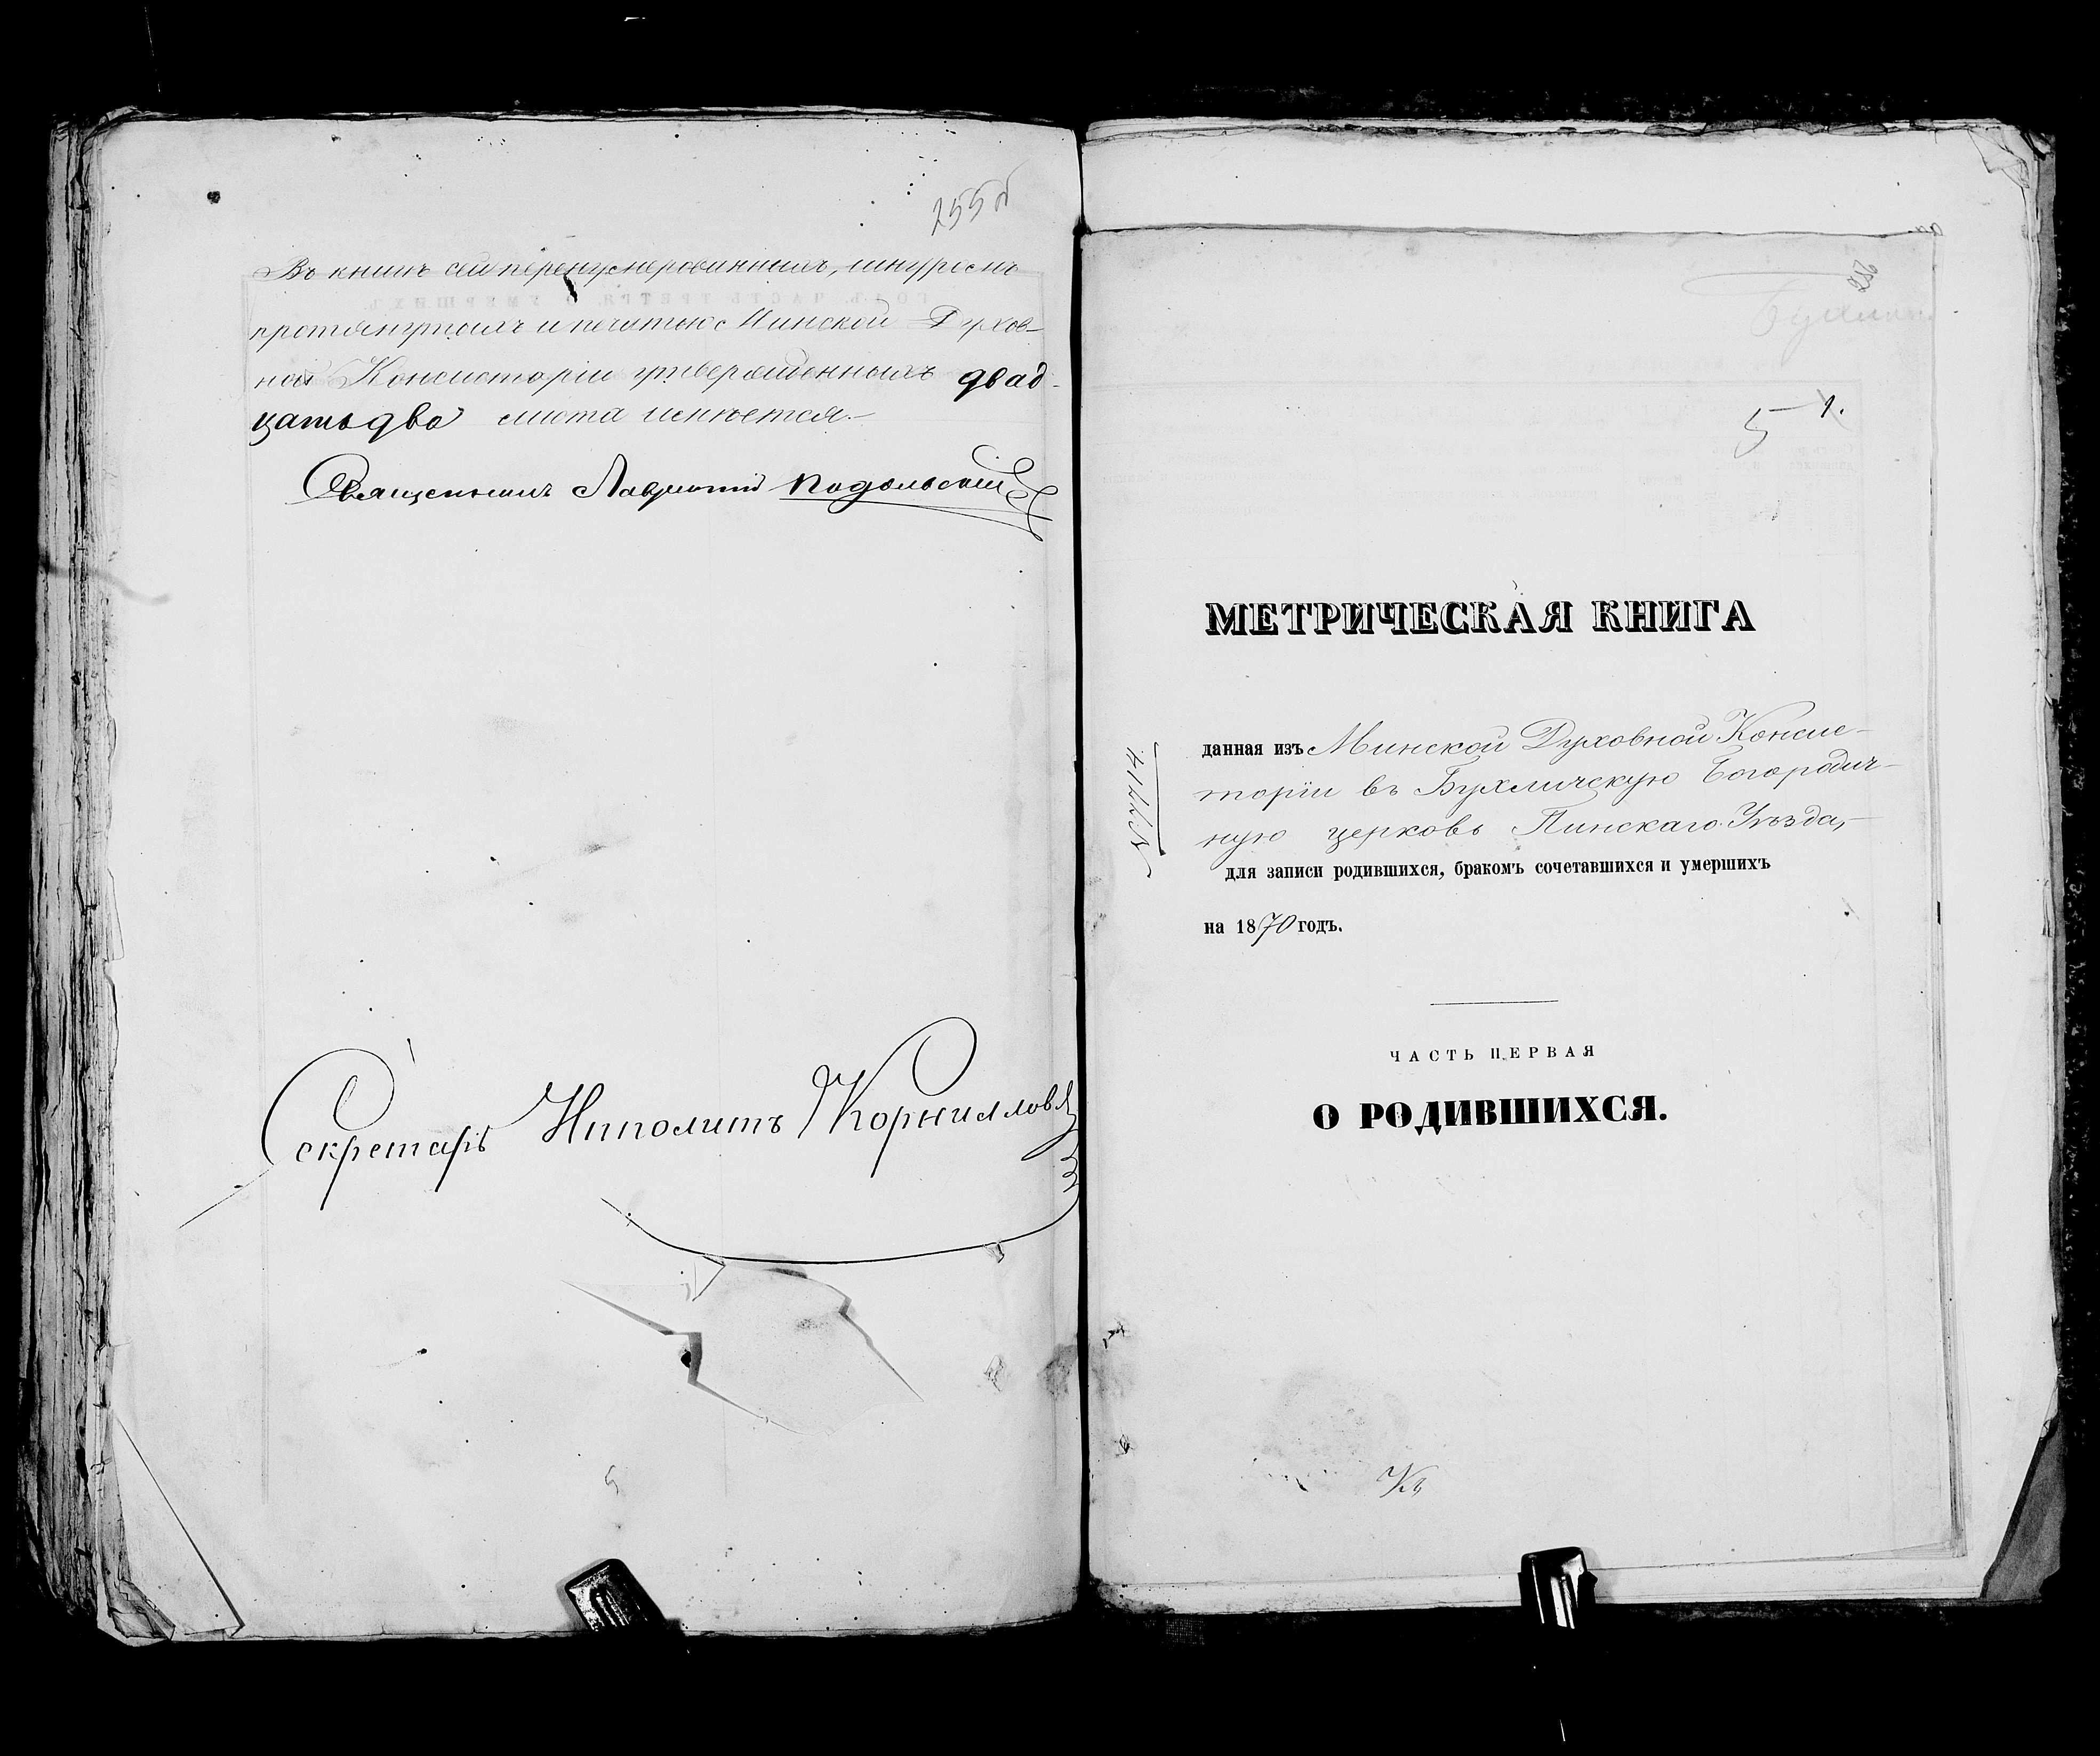 255об
Въ книгѣ сей перенумерованныхъ, шнуромъ
протянутыхъ и печатью Минской Духов-
ной Консисторіи утвержденныхъ двад-
цать два листа имѣется.—
Священникъ Лаврентій Подольскій
Секретарь Ипполитъ Корниловъ
256
5
1.
МЕТРИЧЕСКАЯ КНИГА
данная изъ Минской Духовной Консис-
торіи въ Бухличскую Богородич-
ную церковь Пинскаго Уѣзда,—
для записи родившихся, бракомъ сочетавшихся и умершихъ
на 1870 годъ.
ЧАСТЬ ПЕРВАЯ
О РОДИВШИХСЯ.